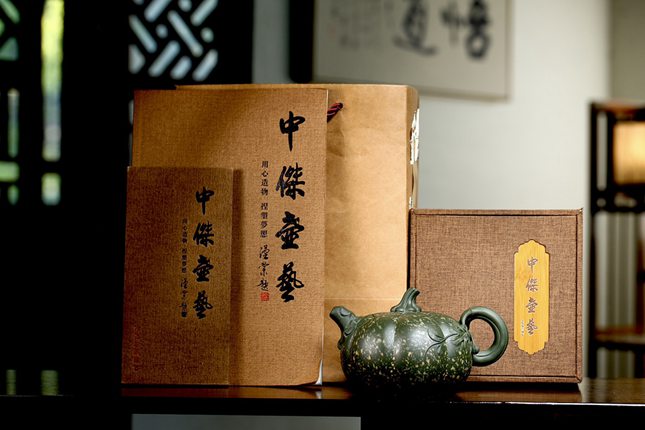 中傑壺藝
用心造物 捏塑夢想
中傑壺藝
用心造物 捏塑夢想
中傑壺藝
悟道